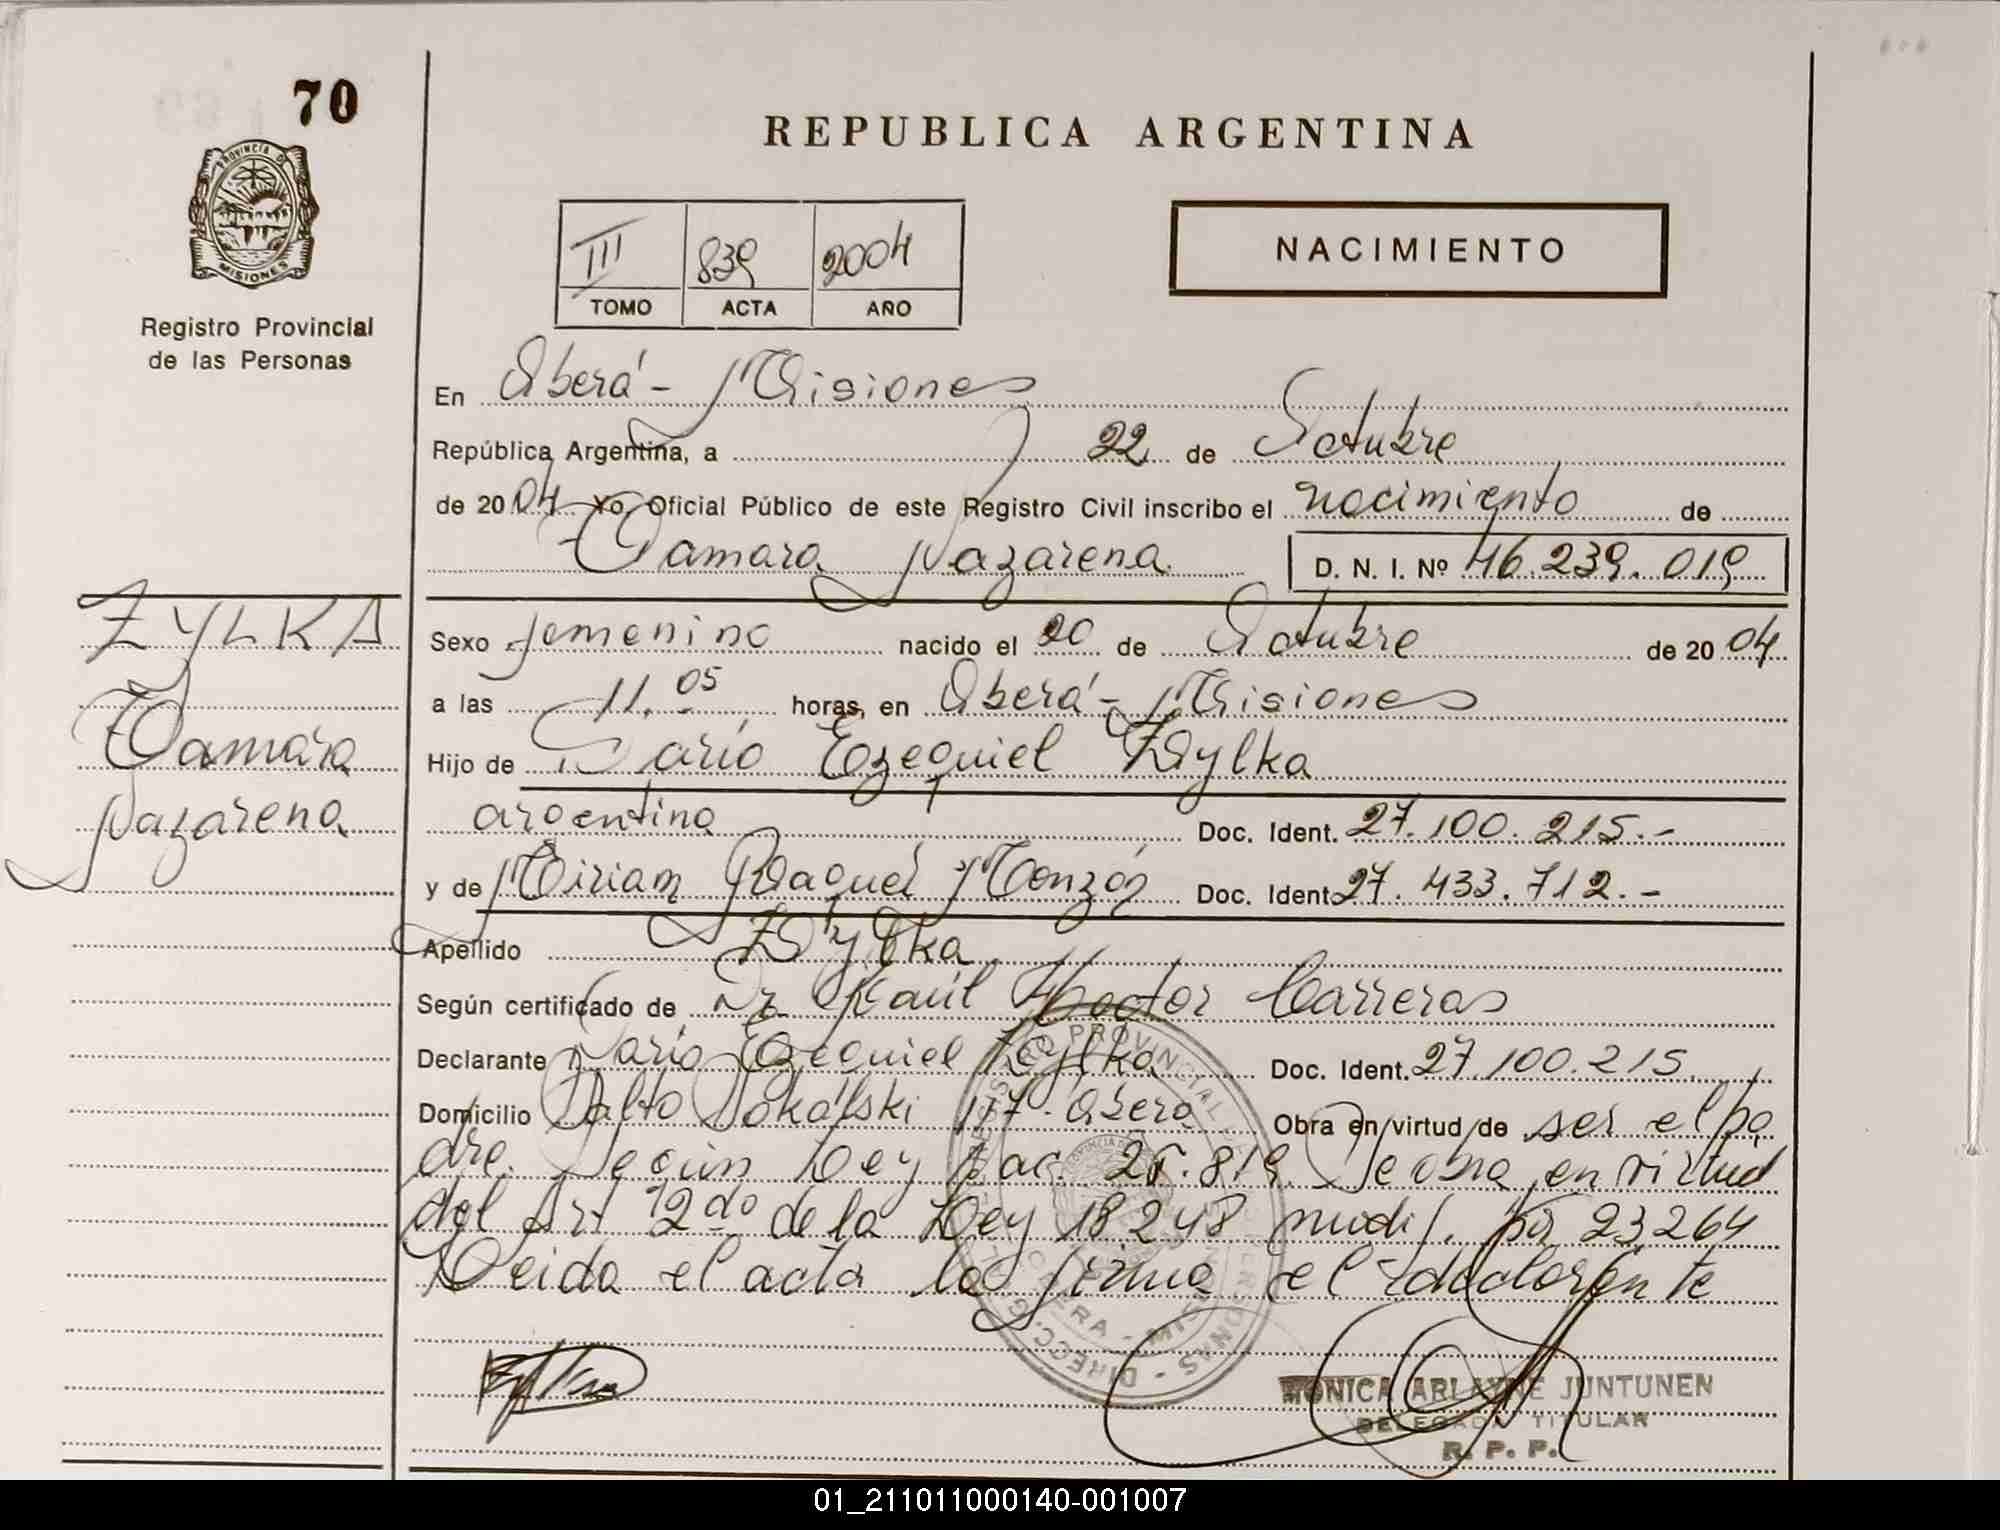 70
PROVINCIA DE
MISIONES
Registro Provincial
de las Personas
REPUBLICA ARGENTINA
III 839 2004
TOMO ACTA AÑO
NACIMIENTO
En Oberá - Misiones
República Argentina, a 22 de Octubre
de 2004 Yo, Oficial Público de este Registro Civil inscribo el nacimiento de
Tamara Nazarena D. N. I. Nº 46.239.019
ZYLKA
Tamara
Nazarena
Sexo femenino nacido el 20 de Octubre de 2004
a las 11.05 horas, en Oberá - Misiones
Hijo de Darío Ezequiel Zylka
argentino Doc. Ident. 27.100.215.-
y de Miriam Raquel Monzón Doc. Ident. 27.433.712.-
Apellido Zylka
Según certificado de Dr Raúl Hector Carreras
Declarante Darío Ezequiel Zylka Doc. Ident. 27.100.215.
Domicilio Salto 117 - Oberá Obra en virtud de ser el pa
dre. Según Ley nac. 25.819. Se obra en virtud
del Art 12 do de la Ley 18248 modif. por 23264
Leida el acta la firma el declarante
MONICA ARLAYNE JUNTUNEN
DELEGADA TITULAR
R. P. P.
01_211011000140-001007